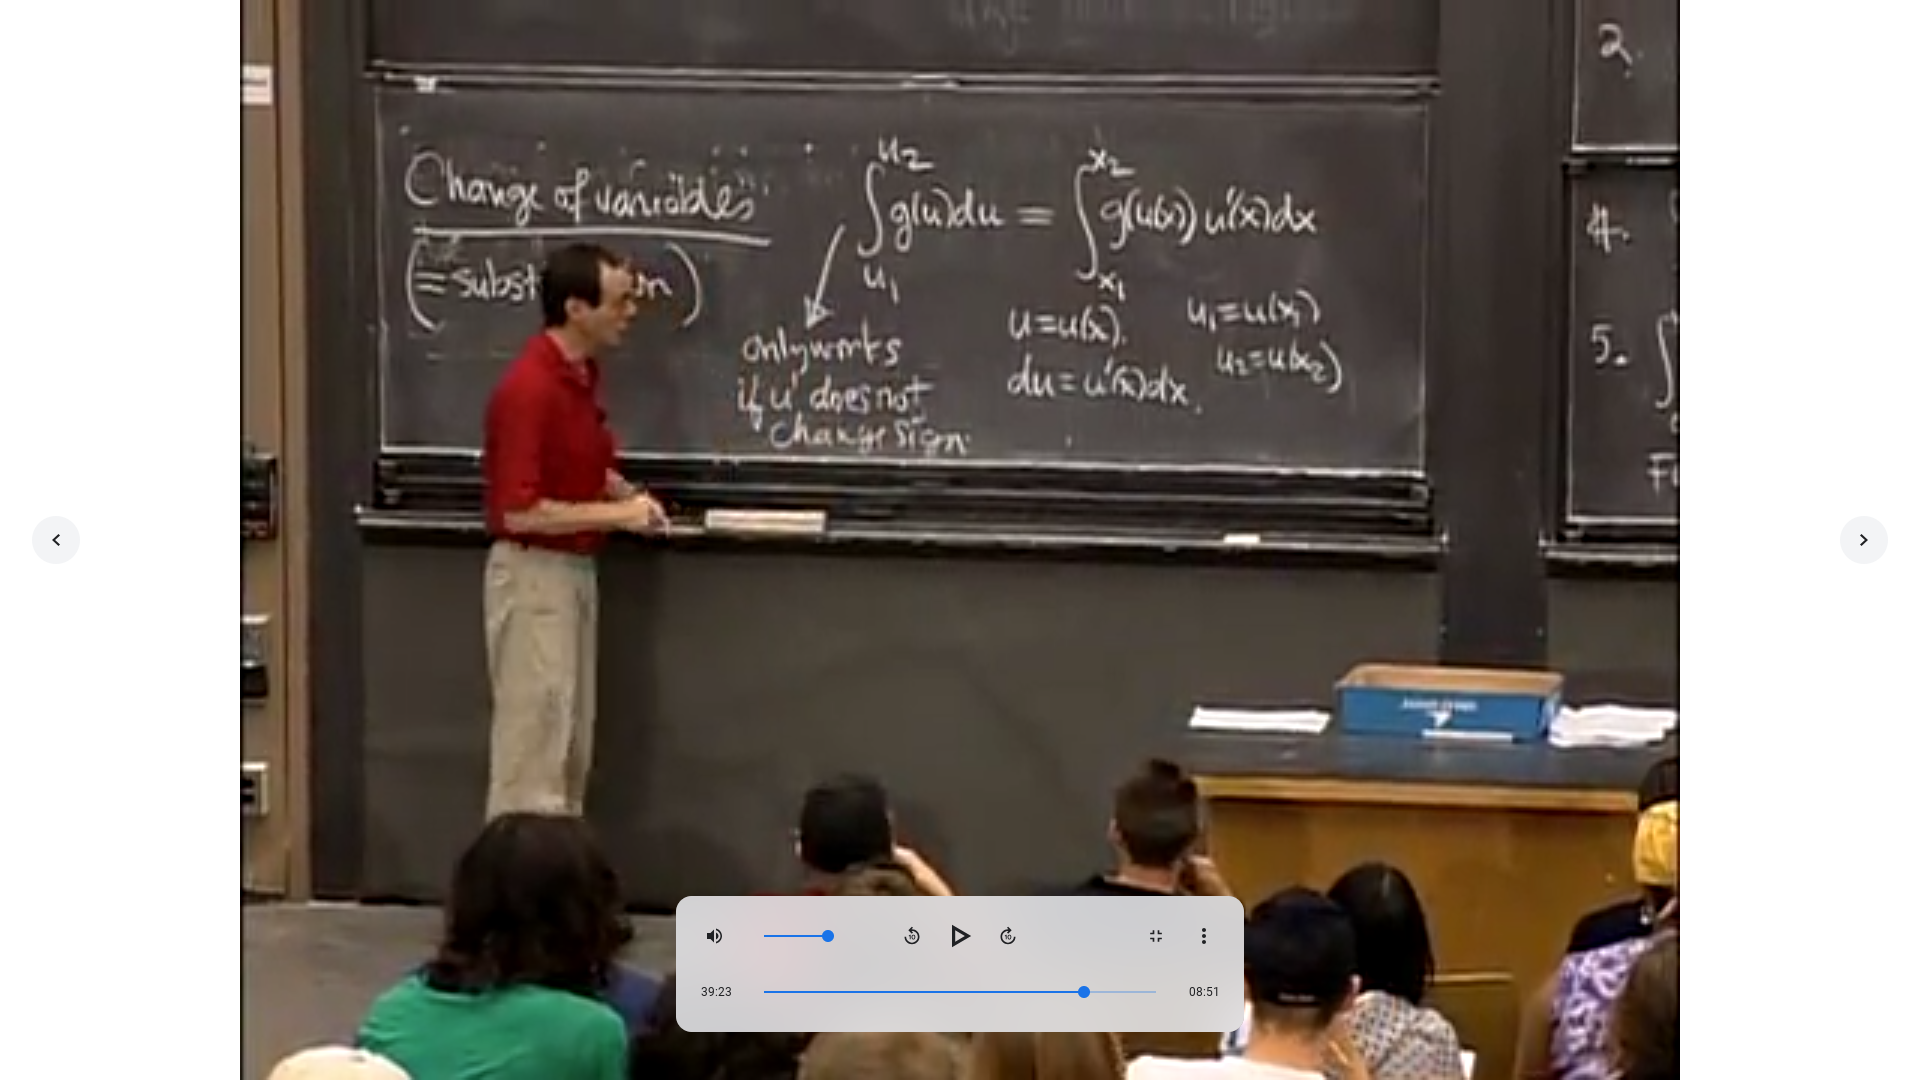 Change of variables
(= subst on)
∫_{u₁}^{u₂} g(u)du = ∫_{x₁}^{x₂} g(u(x)) u'(x)dx
only works
if u' does not
change sign.
u=u(x).
du = u'(x)dx.
u₁=u(x₁)
u₂=u(x₂)
2.
4.
5. ∫
10
10
39:23
08:51